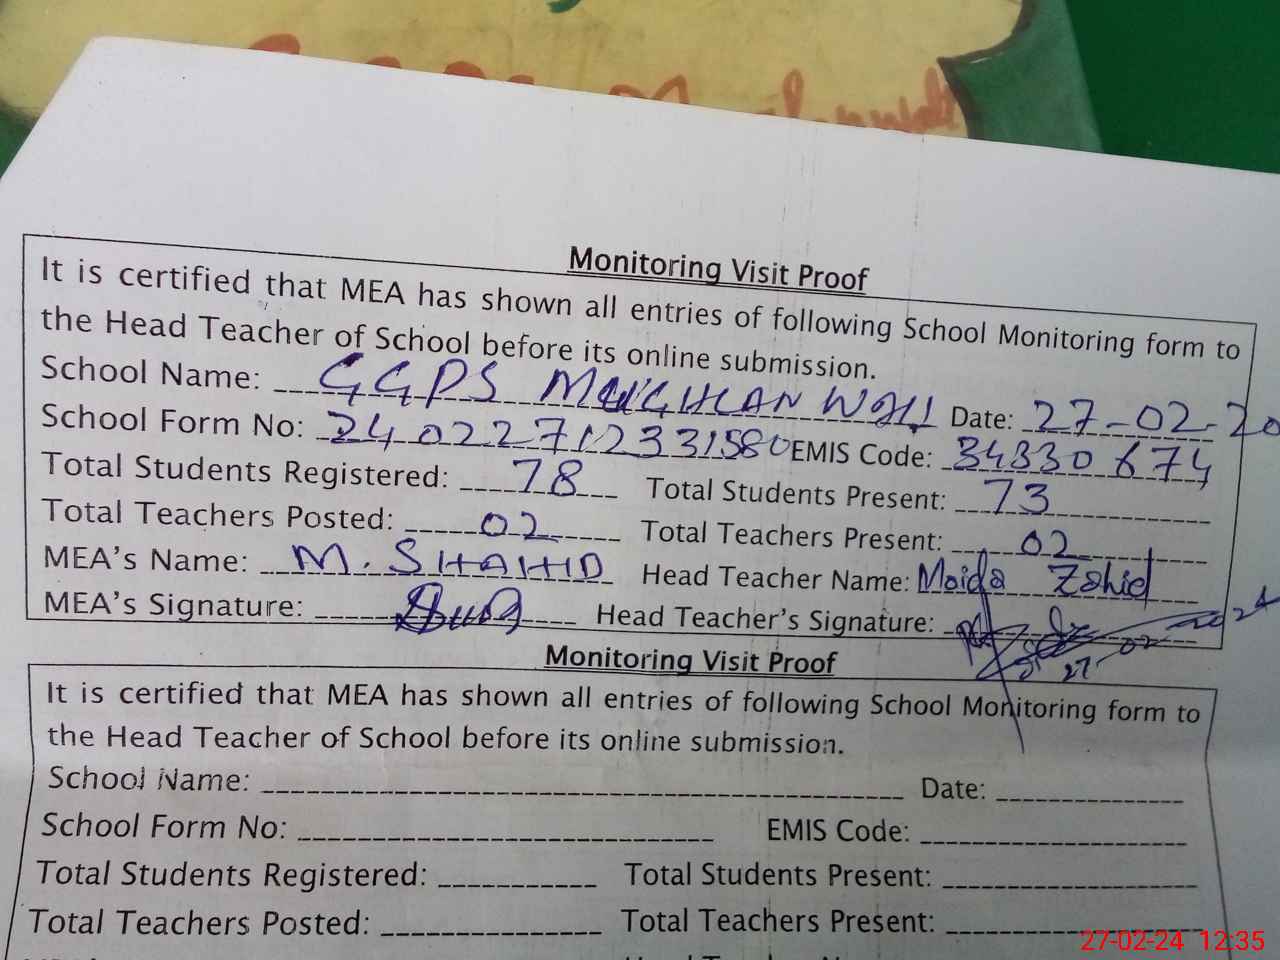 Monitoring Visit Proof
It is certified that MEA has shown all entries of following School Monitoring form to
the Head Teacher of School before its online submission.
School Name: GGPS MUGHLAN WALI Date: 27-02-20
School Form No: 240227123331580 EMIS Code: 34330674
Total Students Registered: 78 Total Students Present: 73
Total Teachers Posted: 02 Total Teachers Present: 02
MEA's Name: M. SHAHID Head Teacher Name: Maida Zahid
MEA's Signature: Head Teacher's Signature:
27-02-2024
Monitoring Visit Proof
It is certified that MEA has shown all entries of following School Monitoring form to
the Head Teacher of School before its online submission.
School Name: Date:
School Form No: EMIS Code:
Total Students Registered: Total Students Present:
Total Teachers Posted: Total Teachers Present:
27-02-24 12:35